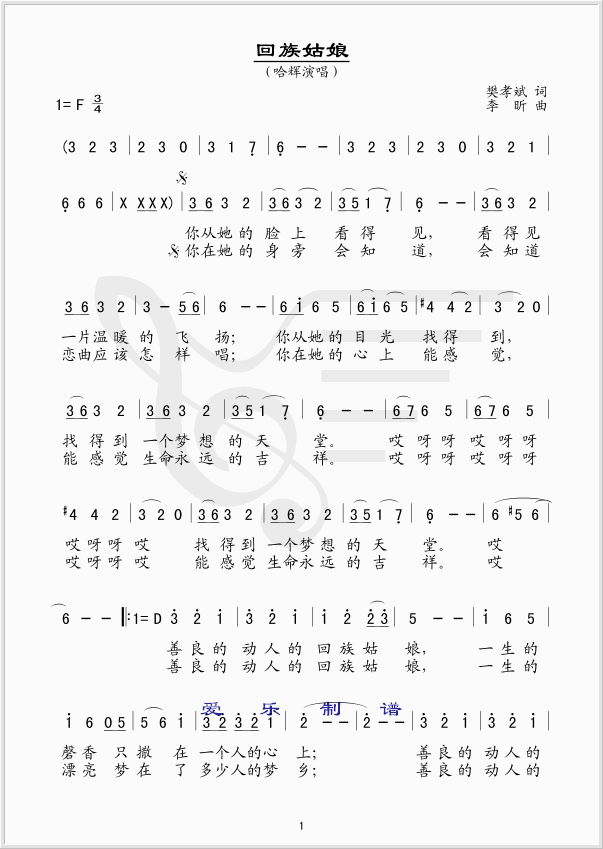 回族姑娘
(哈辉演唱)
1= F 3/4
樊孝斌 词
李 昕 曲
(3 2 3 | 2 3 0 | 3 1 7 | 6 - - | 3 2 3 | 2 3 0 | 3 2 1 |
6 6 6 | X XXX) | 3 6 3 2 | 3 6 3 2 | 3 5 1 7 | 6 - - | 3 6 3 2 |
你从她的 脸 上 看 得 见， 看 得 见
你在她的 身 旁 会 知 道， 会 知 道
3 6 3 2 | 3 - 5 6 | 6 - - | 6 i 6 5 | 6 i 6 5 | #4 4 2 | 3 2 0 |
一片温暖 的 飞 扬； 你从她的 目 光 找 得 到，
恋曲应该 怎 样 唱； 你在她的 心 上 能 感 觉，
3 6 3 2 | 3 6 3 2 | 3 5 1 7 | 6 - - | 6 7 6 5 | 6 7 6 5 |
找 得 到 一个梦 想 的 天 堂。 哎 呀 呀 哎 呀 呀
能 感 觉 生命永 远 的 吉 祥。 哎 呀 呀 哎 呀 呀
#4 4 2 | 3 2 0 | 3 6 3 2 | 3 6 3 2 | 3 5 1 7 | 6 - - | 6 #5 6 |
哎 呀 呀 哎 找 得 到 一个梦 想 的 天 堂。 哎
哎 呀 呀 哎 能 感 觉 生命永 远 的 吉 祥。 哎
6 - - ‖: 1= D 3 2 i | 3 2 i | i 2 2 3 | 5 - - | i 6 5 |
善 良 的 动 人 的 回 族 姑 娘， 一 生 的
善 良 的 动 人 的 回 族 姑 娘， 一 生 的
爱 乐 制 谱
i 6 0 5 | 5 6 i | 3 2 3 2 i | 2 - - | 2 - - | 3 2 i | 3 2 i |
磬 香 只 撒 在 一个人的心 上； 善 良 的 动 人 的
漂 亮 梦 在 了 多少人的梦 乡； 善 良 的 动 人 的
1